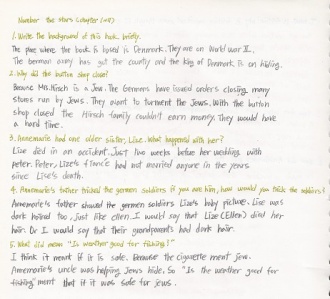 Number the stars (chapter 1~17)
1. Write the background of this book briefly.
The place where the book is based is Denmark. They are on World war II.
The German army has got the country and the king of Denmark is on hiding.
2. Why did the button shop close?
Because Mrs. Hirsch is a Jew. The Germans have issued orders closing many
stores run by Jews. They want to torment the Jews. With the button
shop closed the Hirsch family couldn't earn money. They would have
a hard time.
3. Annemarie had one older sister, Lise. What happened with her?
Lise did in an accident. Just two weeks before her wedding with
peter. Peter, Lise's fiance had not married anyone in the years
since Lise's death.
4. Annemarie's father tricked the german soldiers if you are him, how would you trick the soldiers?
Annemarie's father showed the german soldiers Lise's baby picture. Lise was
dark haired too, just like ellen. I would say that Lise (Ellen) died her
hair. Or I would say that their grandparents had dark hair.
5. What did mean "Is weather good for fishing?"
I think it meant if it is safe. Because the cigarette ment jews.
Annemarie's uncle was helping Jews hide, So "Is the weather good for
fishing" meant that if it was safe for jews.